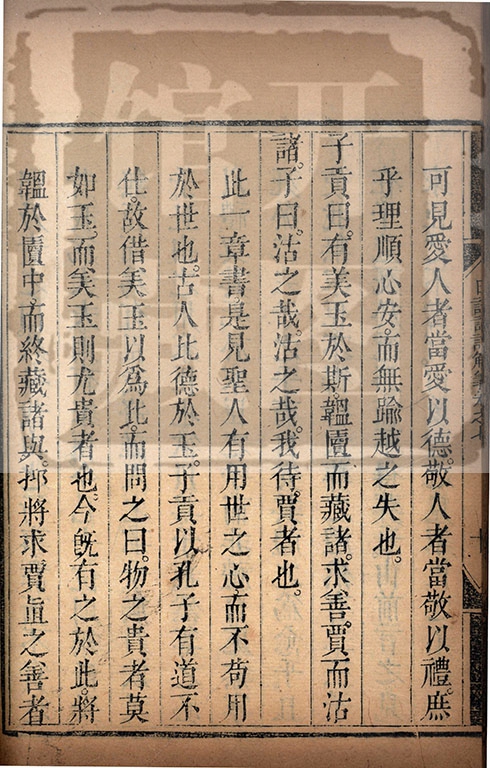 可見愛人者當愛以德。敬人者當敬以禮。庶
乎理順心安。而無踰越之失也。
子貢。曰。有美玉於斯。韞匵而藏諸。求善賈而沽
諸。子曰。沽之哉。沽之哉。我待賈者也。
此一章書是見聖人有用世之心。而不苟用
於世也。古人比德於玉。子貢以孔子有道不
仕。故借美玉以爲比。而問之曰。物之貴者莫
如玉。而美玉則尤貴者也。今旣有之於此。將
韞於匵中。而終藏諸與。抑將求賈直之善者